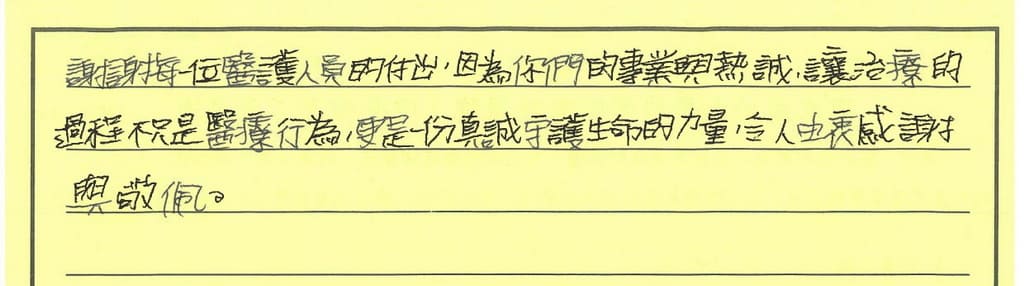 謝謝每一位醫護人員的付出,因為你們的專業與熱誠,讓治療的
過程不只是醫療行為,更是一份真誠守護生命的力量,令人由衷感謝
與敬佩。